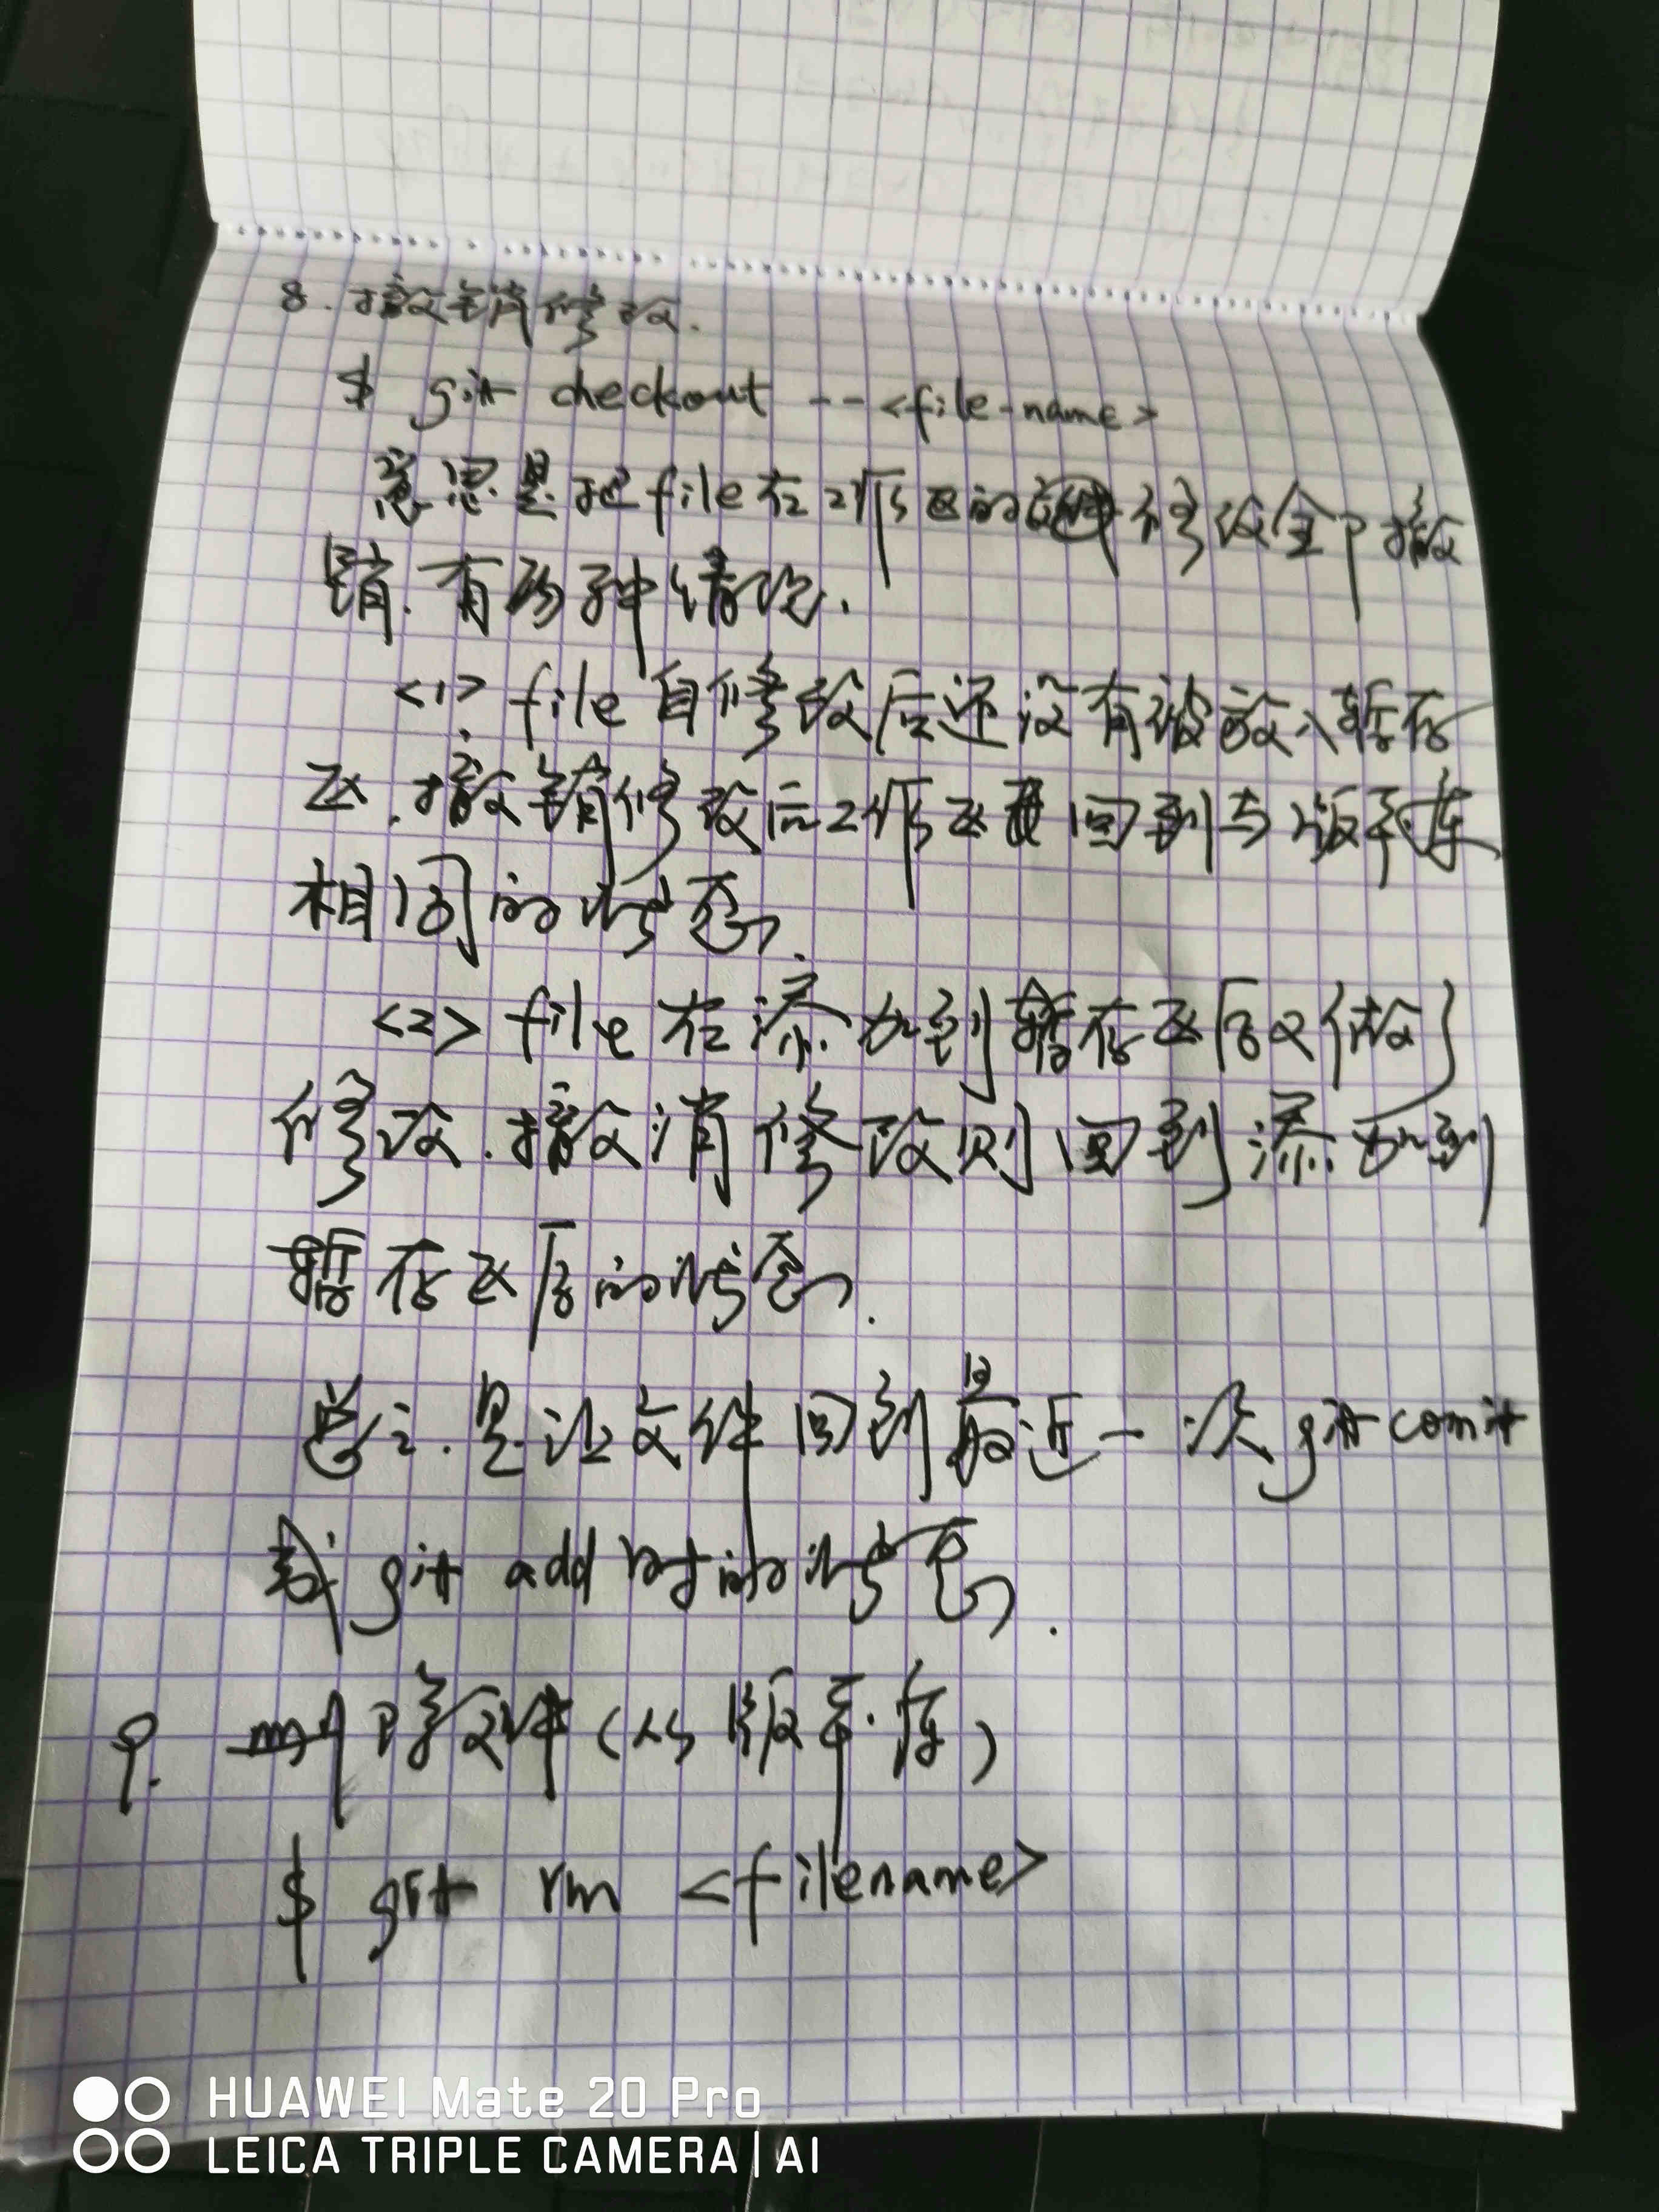 8. 撤销修改.
$ git checkout -- <file-name>
意思是把file在工作区的修改全部撤
销.有两种情况.
<1> file自修改后还没有被放入暂存
区.撤销修改后工作区回到与版本库
相同的状态.
<2> file在添加到暂存区后又作
修改.撤消修改则回到添加到
暂存区后的状态.
总之.是让文件回到最近一次git comit
或git add时的状态.
9. 删除文件(从版本库)
$ git rm <filename>
HUAWEI Mate 20 Pro
LEICA TRIPLE CAMERA | AI